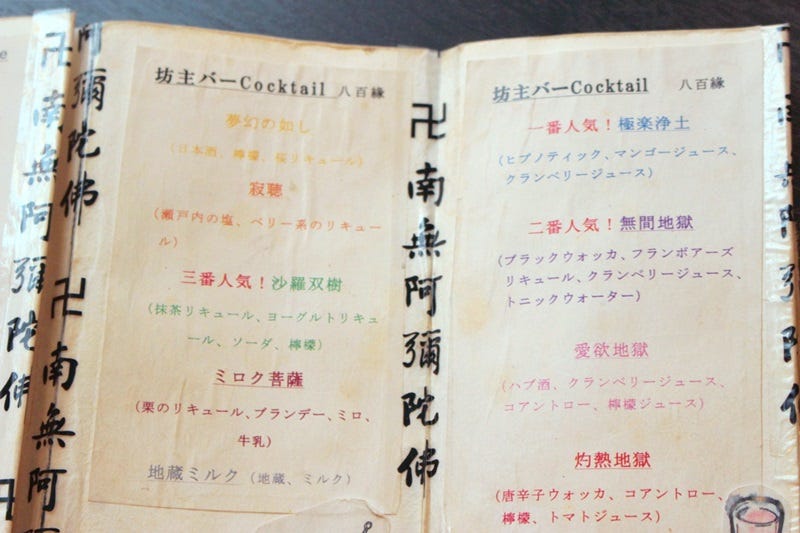 坊主バーCocktail 八百縁
夢幻の如し
（日本酒、檸檬、桜リキュール）
寂聴
（瀬戸内の塩、ベリー系のリキュー
ル）
三番人気！沙羅双樹
（抹茶リキュール、ヨーグルトリキュ
ール、ソーダ、檸檬）
ミロク菩薩
（栗のリキュール、ブランデー、ミロ、
牛乳）
地蔵ミルク（地蔵、ミルク）
坊主バーCocktail 八百縁
一番人気！極楽浄土
（ヒプノティック、マンゴージュース、
クランベリージュース）
二番人気！無間地獄
（ブラックウォッカ、フランボアーズ
リキュール、クランベリージュース、
トニックウォーター）
愛欲地獄
（ハブ酒、クランベリージュース、
コアントロー、檸檬ジュース）
灼熱地獄
（唐辛子ウォッカ、コアントロー、
檸檬、トマトジュース）
卍南無阿彌陀佛
阿彌陀佛
卍南無阿
卍南無阿彌陀佛